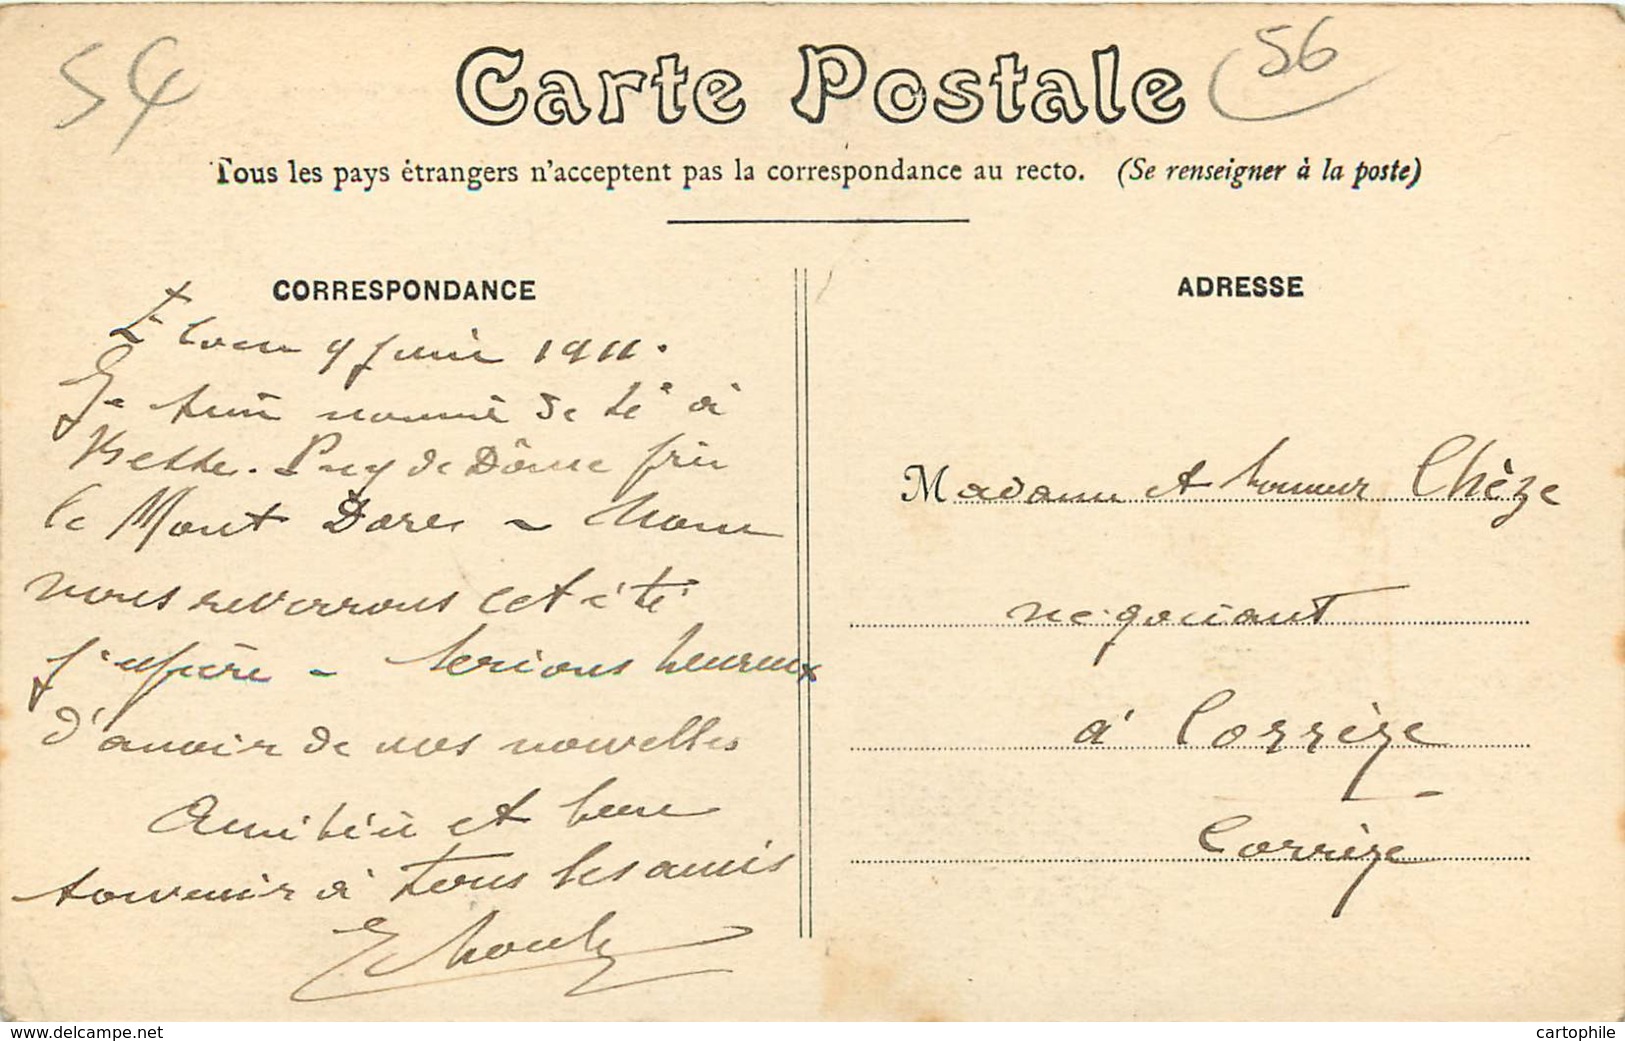 54
56
Carte Postale
Tous les pays étrangers n'acceptent pas la correspondance au recto. (Se renseigner à la poste)
CORRESPONDANCE
Elven 9 juin 1911.
Je suis nommé de là à
Besse. Puy de Dôme près
le Mont Dore -
nous reverrons cet été
j'espère - serions heureux
d'avoir de vos nouvelles
Amitiés et bon
souvenir à tous les amis
ADRESSE
Madame et Monsieur Chèze
négociant
à Corrèze
Corrèze
www.delcampe.net
cartophile